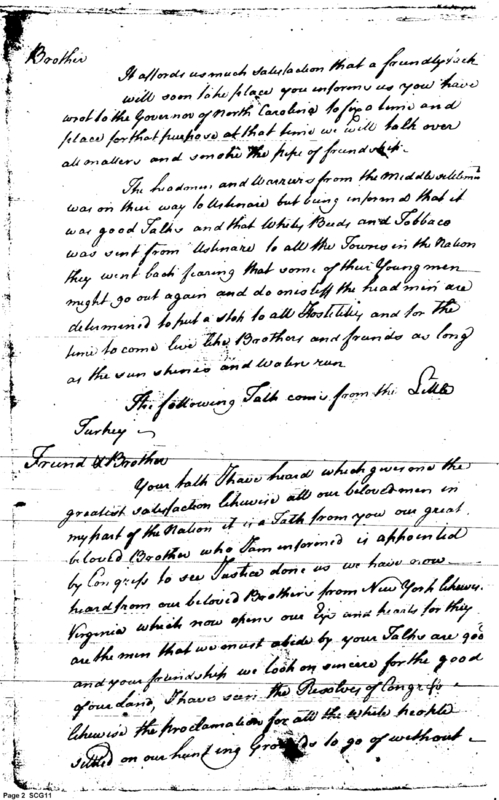 Brother
It affords us much satisfaction that a friendly talk
will soon take place you inform us you have
wrot to the Governor of North Carolina to fix a time and
place for that purpose at that time we will talk over
all matters and smoke the pipe of friendship.
The headmen and Warriors from the Middle settlemts
was on their way to Ustinare but being informed that it
was good Talks and that White Beeds and Tobbaco
was sent from Ustinare to all the Towns in the Nation
they went back fearing that some of their Young men
might go out again and do mischiff the head men are
determined to put a stop to all Hostilities and for the
time to come live like Brothers and friends as long
as the sun shines and water run
The following Talk comes from the Little
Turkey
Friend & Brother
Your talk I have heard which gives me the
greatest satisfaction likewise all our beloved men in
my part of the Nation it is a Talk from you our great
beloved Brother who I am informed is appointed
by Congress to see Justice done us we have now
heard from our beloved Brothers from New York likewise
Virginia which now opens our Eye and hearts for they
are the men that we must abide by your Talks are good
and your friendship we look on sincere for the good
of our land, I have seen the Resolves of Congress
likewise the proclamation for all the white people
settled on our hunting Grounds to go of without
Page 2 SCG11